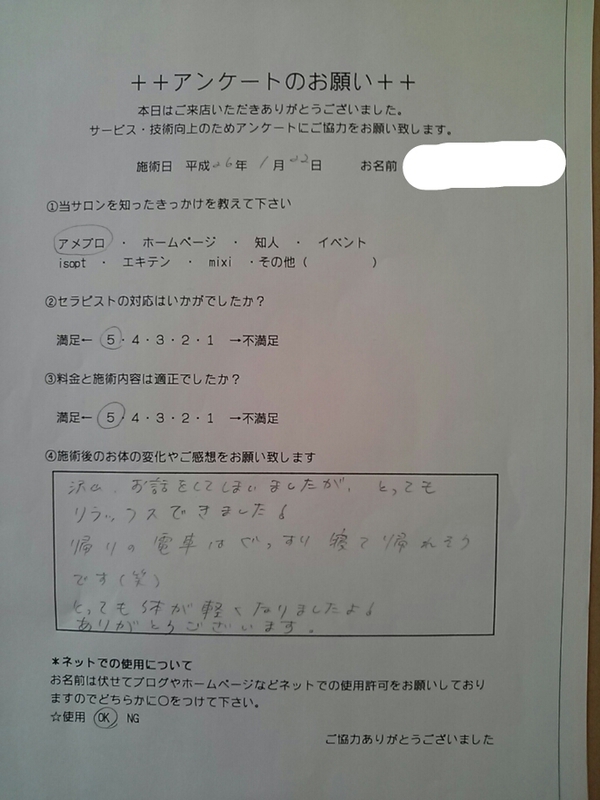 ++アンケートのお願い++
本日はご来店いただきありがとうございました。
サービス・技術向上のためアンケートにご協力をお願い致します。
施術日 平成26年 1月22日 お名前
①当サロンを知ったきっかけを教えて下さい
アメブロ ・ ホームページ ・ 知人 ・ イベント
isopt ・ エキテン ・ mixi ・その他（ ）
②セラピストの対応はいかがでしたか？
満足← 5・4・3・2・1 →不満足
③料金と施術内容は適正でしたか？
満足← 5・4・3・2・1 →不満足
④施術後のお体の変化やご感想をお願い致します
沢山、お話をしてしまいましたが、とっても
リラックスできました!
帰りの電車はぐっすり寝て帰れそう
です(笑)
とっても体が軽くなりましたよ!
ありがとうございます。
＊ネットでの使用について
お名前は伏せてブログやホームページなどネットでの使用許可をお願いしており
ますのでどちらかに○をつけて下さい。
☆使用 OK NG
ご協力ありがとうございました